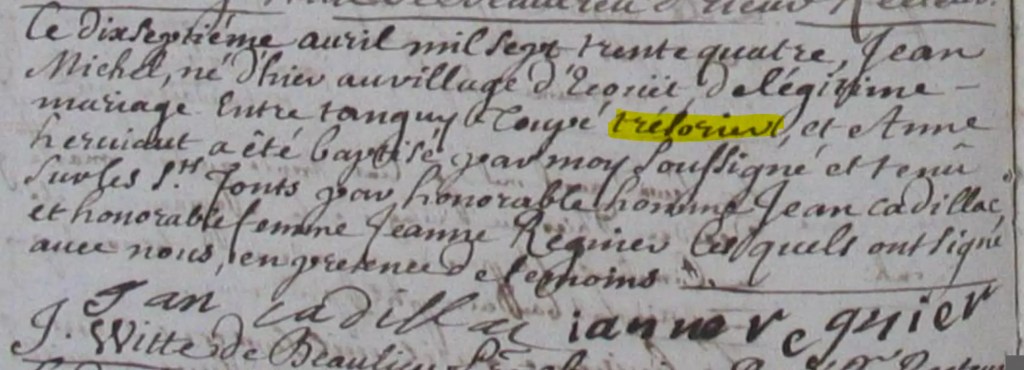 Ce dixseptiéme auril mil sept trente quatre, Jean
Michel, né d'hier au village d' de légitime -
mariage Entre tanguy Toupé trésorier, et Anne
heruiant a été baptisé par moy soussigné et tenu
sur les Sts fonts par honorable homme Jean Cadillac,
et honorable femme Jeanne Régnier lesquels ont signé
auec nous, en presence de temoins
Jan Cadillac ianne regnier
J. Witte de Beaulieu